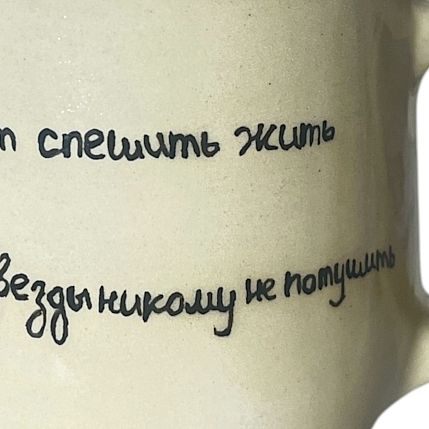 т спешить жить
везды никому не потушить